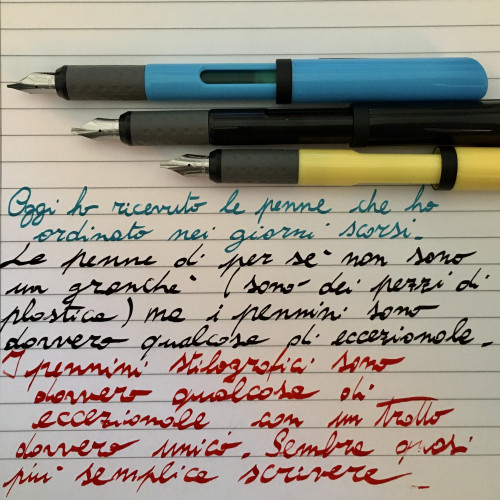 Oggi ho ricevuto le penne che ho
ordinato nei giorni scorsi.
Le penne di per sè non sono
un granchè (sono dei pezzi di
plastica) ma i pennini sono
davvero qualcosa di eccezionale.
I pennini stilografici sono
davvero qualcosa di
eccezionale con un tratto
davvero unico. Sembra quasi
più semplice scrivere.